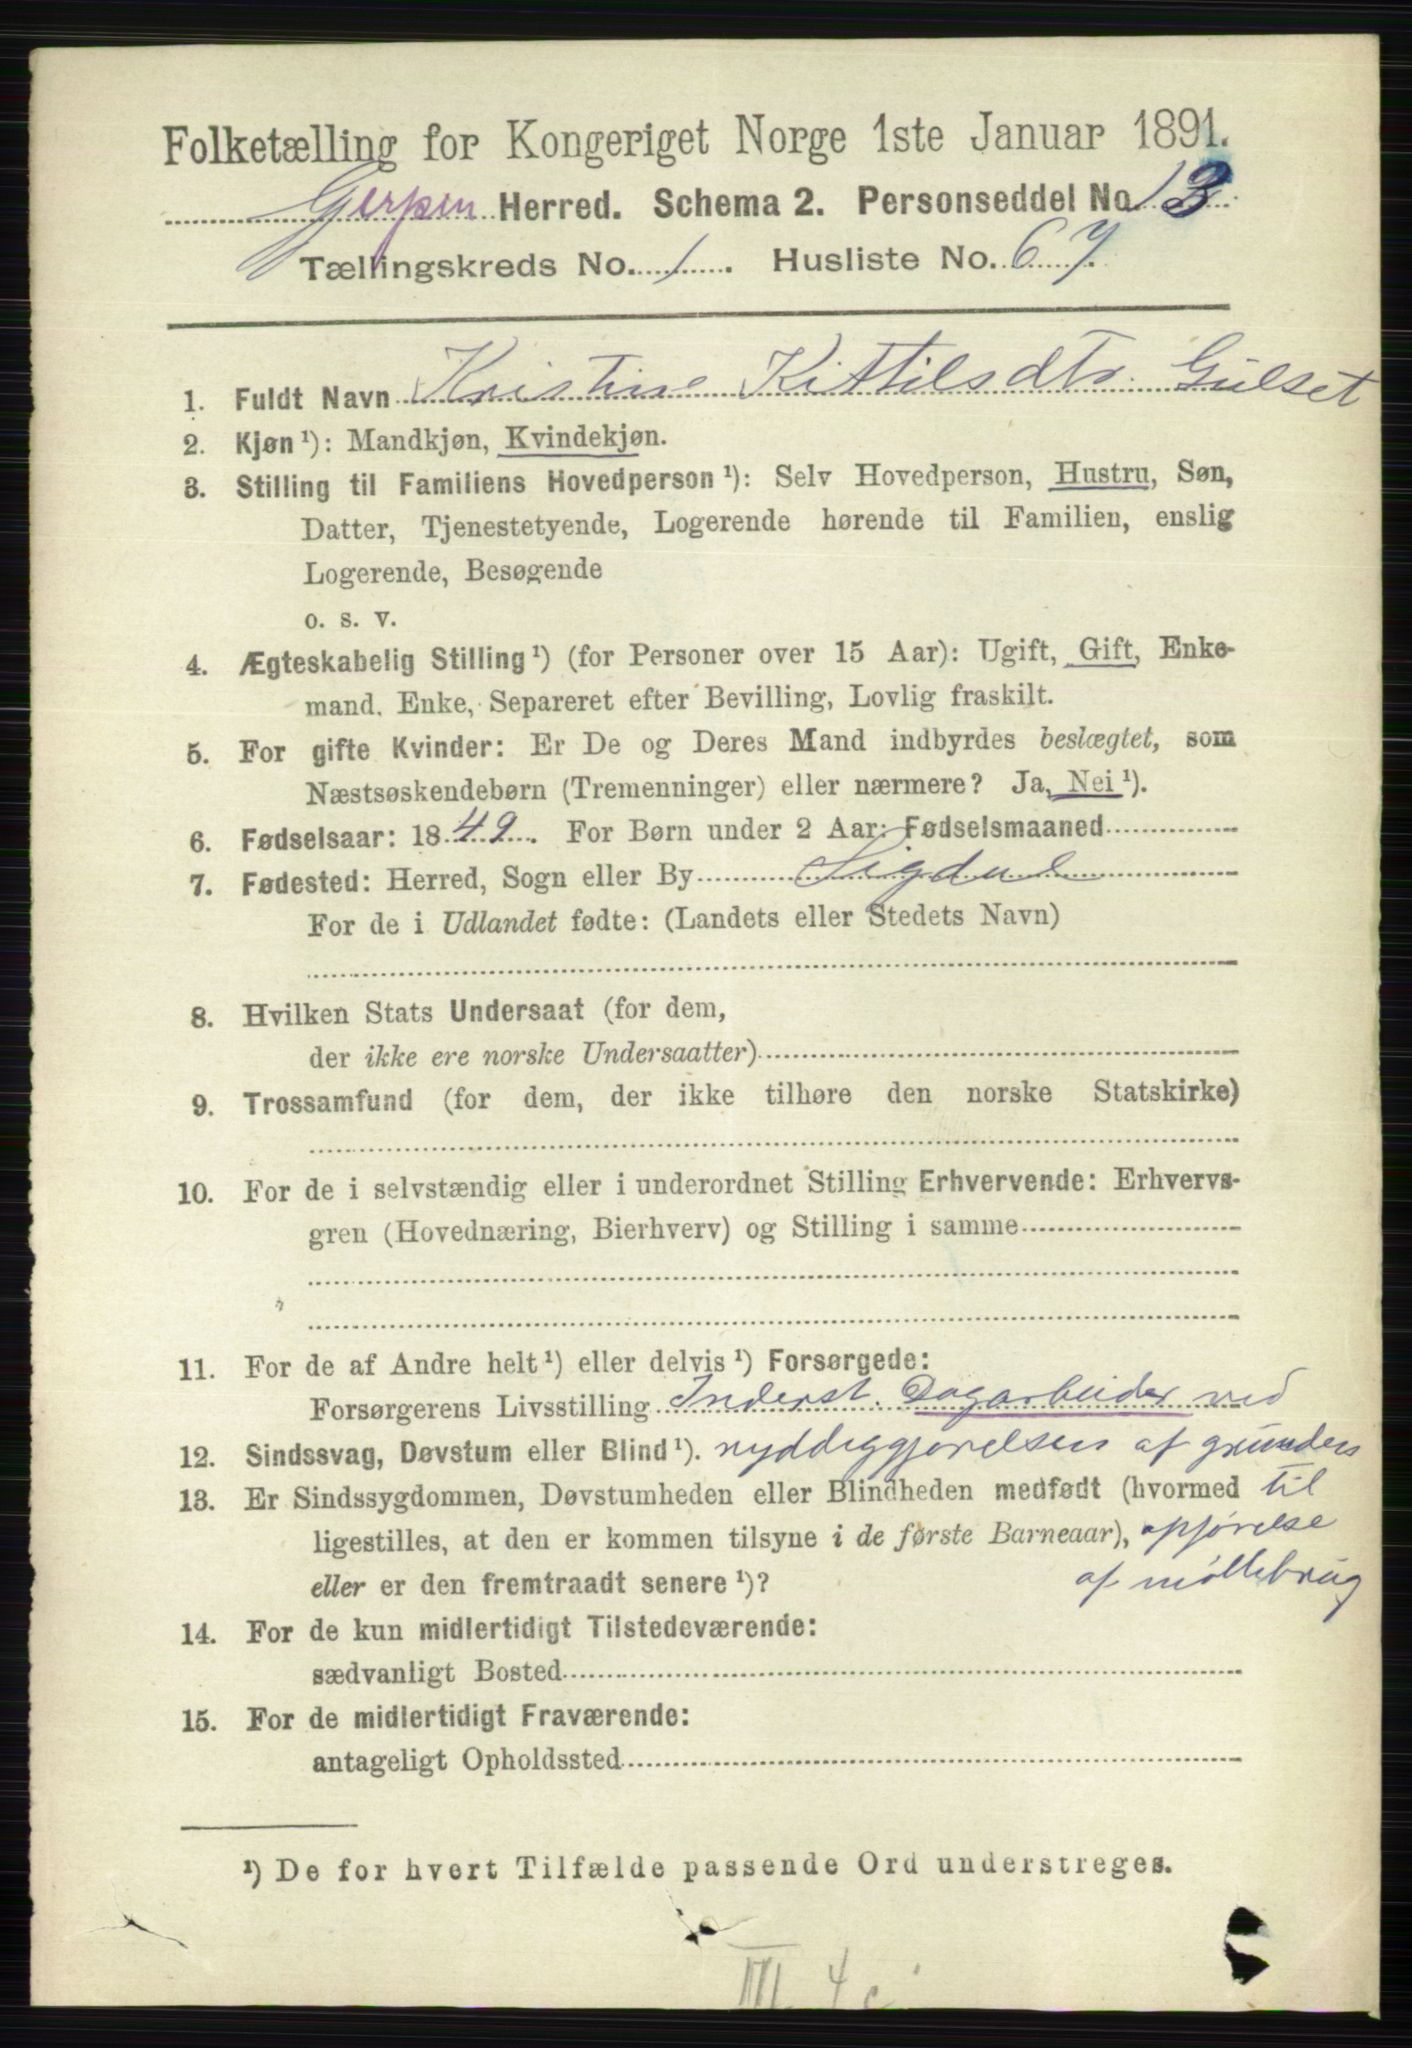 Folketælling for Kongeriget Norge 1ste Januar 1891.
Gjerpen Herred. Schema 2. Personseddel No. 13
Tællingskreds No. 1. Husliste No. 67.
1. Fuldt Navn Kristine Kittilsdtr. Gulset
2. Kjøn ¹): Mandkjøn, Kvindekjøn.
3. Stilling til Familiens Hovedperson ¹): Selv Hovedperson, Hustru, Søn,
Datter, Tjenestetyende, Logerende hørende til Familien, enslig
Logerende, Besøgende
o. s. v.
4. Ægteskabelig Stilling ¹) (for Personer over 15 Aar): Ugift, Gift, Enke-
mand, Enke, Separeret efter Bevilling, Lovlig fraskilt.
5. For gifte Kvinder: Er De og Deres Mand indbyrdes beslægtet, som
Næstsøskendebørn (Tremenninger) eller nærmere? Ja, Nei ¹).
6. Fødselsaar: 1849. For Børn under 2 Aar: Fødselsmaaned
7. Fødested: Herred, Sogn eller By Sigdal
For de i Udlandet fødte: (Landets eller Stedets Navn)
8. Hvilken Stats Undersaat (for dem,
der ikke ere norske Undersaatter)
9. Trossamfund (for dem, der ikke tilhøre den norske Statskirke)
10. For de i selvstændig eller i underordnet Stilling Erhvervende: Erhvervs-
gren (Hovednæring, Bierhverv) og Stilling i samme
11. For de af Andre helt ¹) eller delvis ¹) Forsørgede:
Forsørgerens Livsstilling Inderst. Dagarbeider ved
12. Sindssvag, Døvstum eller Blind ¹). ryddiggjørelsen af grunden
13. Er Sindssygdommen, Døvstumheden eller Blindheden medfødt (hvormed til
ligestilles, at den er kommen tilsyne i de første Barneaar), opførelse
eller er den fremtraadt senere ¹)? af møllebrug
14. For de kun midlertidigt Tilstedeværende:
sædvanligt Bosted
15. For de midlertidigt Fraværende:
antageligt Opholdssted
¹) De for hvert Tilfælde passende Ord understreges.
III. 4 c